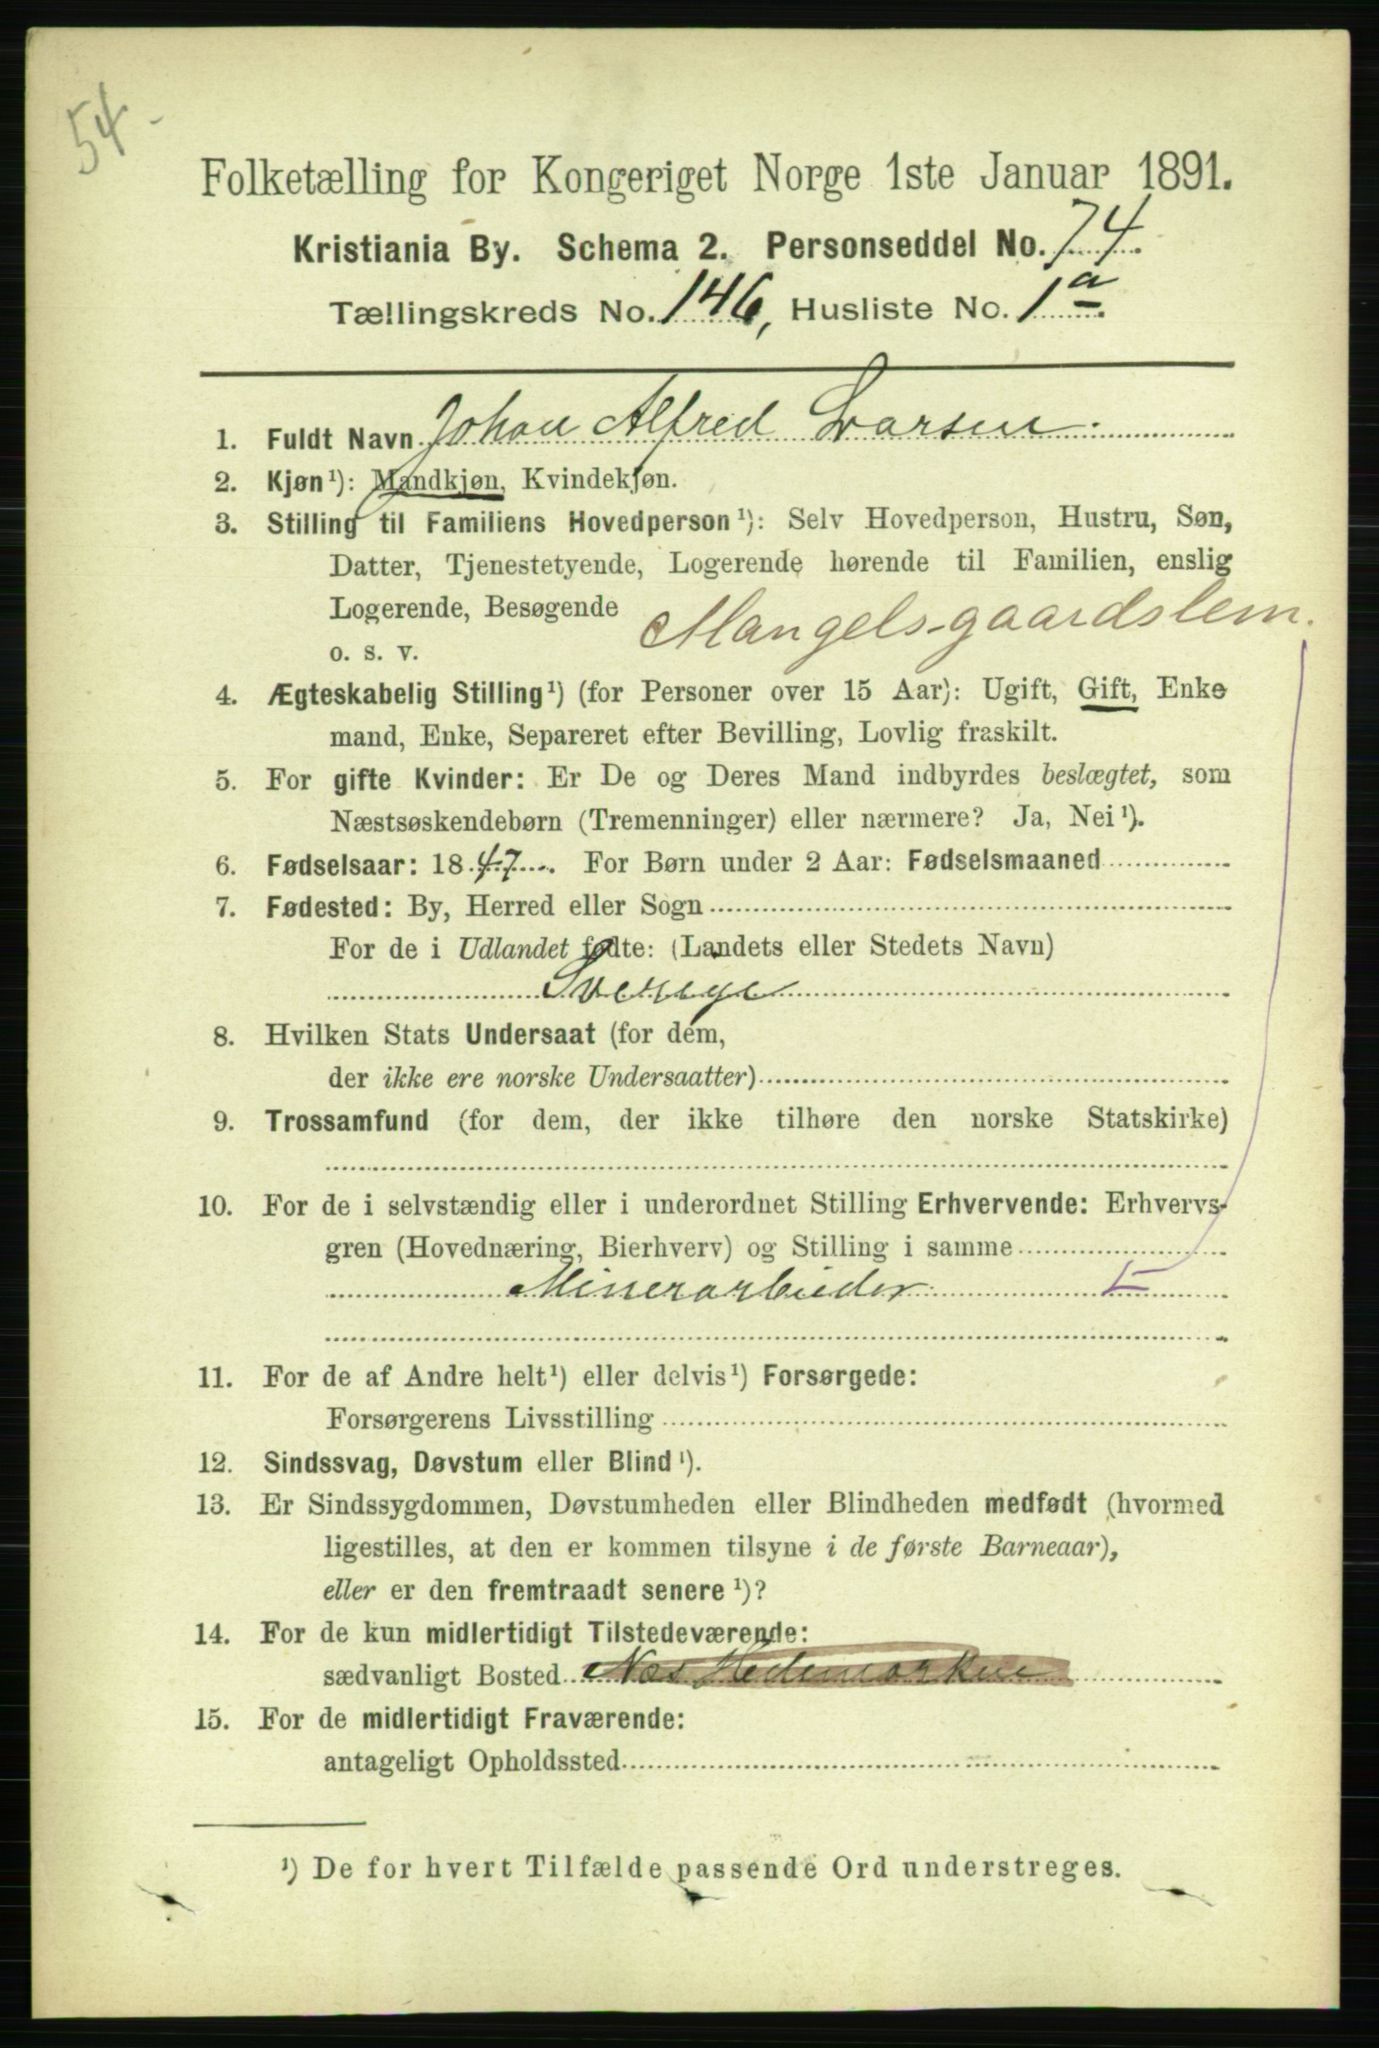 54-
Folketælling for Kongeriget Norge 1ste Januar 1891.
Kristiania By. Schema 2. Personseddel No. 74.
Tællingskreds No. 146, Husliste No. 1a.
1. Fuldt Navn Johan Alfred Larsen.
2. Kjøn¹): Mandkjøn, Kvindekjøn.
3. Stilling til Familiens Hovedperson¹): Selv Hovedperson, Hustru, Søn,
Datter, Tjenestetyende, Logerende hørende til Familien, enslig
Logerende, Besøgende
o. s. v. Mangelsgaardslem.
4. Ægteskabelig Stilling¹) (for Personer over 15 Aar): Ugift, Gift, Enke
mand, Enke, Separeret efter Bevilling, Lovlig fraskilt.
5. For gifte Kvinder: Er De og Deres Mand indbyrdes beslægtet, som
Næstsøskendebørn (Tremenninger) eller nærmere? Ja, Nei¹).
6. Fødselsaar: 1847. For Børn under 2 Aar: Fødselsmaaned
7. Fødested: By, Herred eller Sogn
For de i Udlandet fødte: (Landets eller Stedets Navn)
Sverige
8. Hvilken Stats Undersaat (for dem,
der ikke ere norske Undersaatter)
9. Trossamfund (for dem, der ikke tilhøre den norske Statskirke)
10. For de i selvstændig eller i underordnet Stilling Erhvervende: Erhvervs-
gren (Hovednæring, Bierhverv) og Stilling i samme
Minerarbeider
11. For de af Andre helt¹) eller delvis¹) Forsørgede:
Forsørgerens Livsstilling
12. Sindssvag, Døvstum eller Blind¹).
13. Er Sindssygdommen, Døvstumheden eller Blindheden medfødt (hvormed
ligestilles, at den er kommen tilsyne i de første Barneaar),
eller er den fremtraadt senere¹)?
14. For de kun midlertidigt Tilstedeværende:
sædvanligt Bosted Næs Hedemarken
15. For de midlertidigt Fraværende:
antageligt Opholdssted
¹) De for hvert Tilfælde passende Ord understreges.